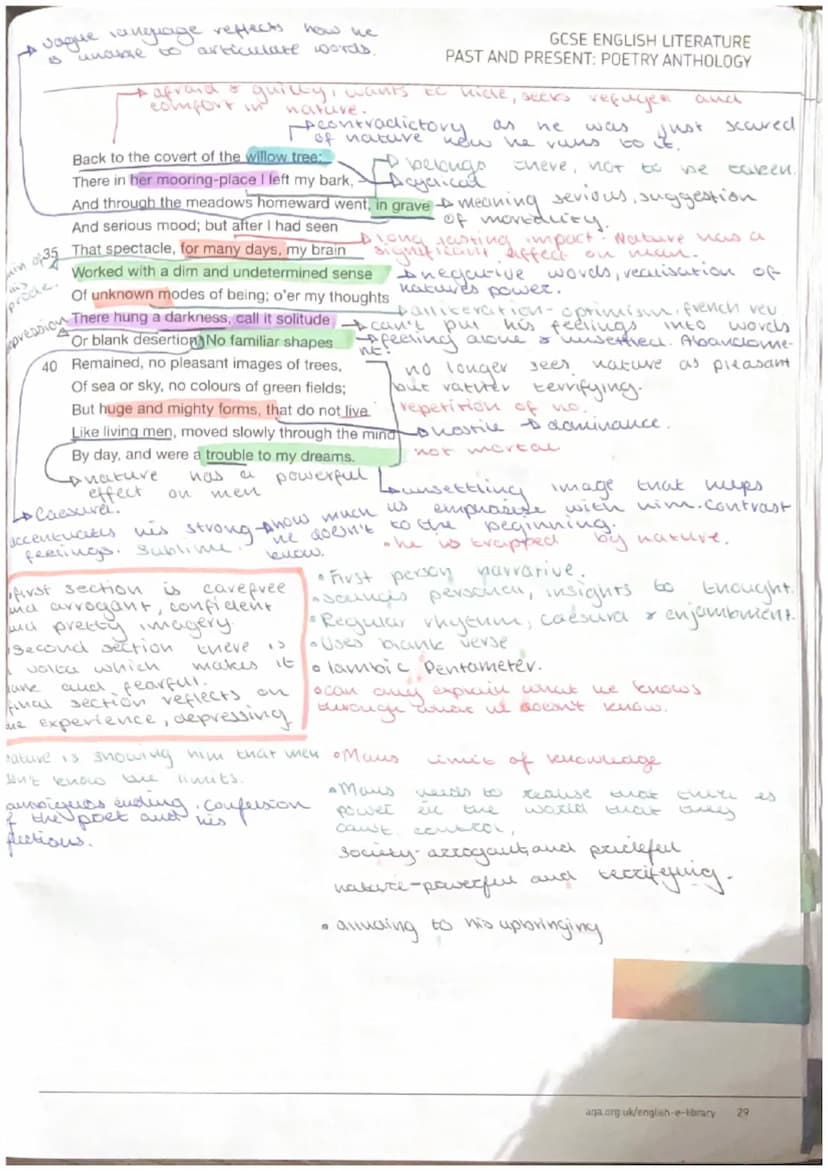 vague language reflects how he
is unable to articulate words.
GCSE ENGLISH LITERATURE
PAST AND PRESENT: POETRY ANTHOLOGY
afraid & guilty, wants to hide, seeks refugee and
comfort in nature.
contradictory as he was just scared
of nature now he runs to it.
Back to the covert of the willow tree;
belongs there, not to be taken.
There in her mooring-place I left my bark, –
cyclical
And through the meadows homeward went, in grave
meaning serious, suggestion
of mortality.
And serious mood; but after I had seen
long lasting impact. Nature has a
significant affect on man.
35 That spectacle, for many days, my brain
Worked with a dim and undetermined sense
negative words, realisation of
natures power.
Of unknown modes of being; o'er my thoughts
alliteration - optimism, french rev
There hung a darkness, call it solitude
can't put his feelings into words
Or blank desertion. No familiar shapes
feeling alone & unsettled. Abandonme-
nt.
40 Remained, no pleasant images of trees,
no longer sees nature as pleasant
Of sea or sky, no colours of green fields;
but rather terrifying.
But huge and mighty forms, that do not live
repetition of no.
Like living men, moved slowly through the mind
hostile → dominance.
By day, and were a trouble to my dreams.
not mortal
nature has a powerful
effect on men
unsettling image that helps
us emphasise with him. Contrast
to the beginning.
Caesura.
accentuates his strong
feelings. Sublime.
how much
he doesn't
know.
• he is trapped by nature.
first section is carefree
and arrogant, confident
and pretty imagery.
second section there is
a volta which makes it
and fearful.
final section reflects on
experience, depressing
• First person narrative.
• sounds personal, insights to thought.
• Regular rhythm, caesura & enjambment.
• Uses blank verse
• Iambic Pentameter.
• can only explain what he knows
through what he doesn't know.
nature is showing him that men
don't know the limits.
ambiguos ending, confusion
of the poet and his
• Mans limit of knowledge
• Mans needs to realise that there is
power in the world that they
can't control,
society - arrogant and prideful
nature - powerful and terrifying.
• to his upbringing
aqa.org.uk/english-e-library 29